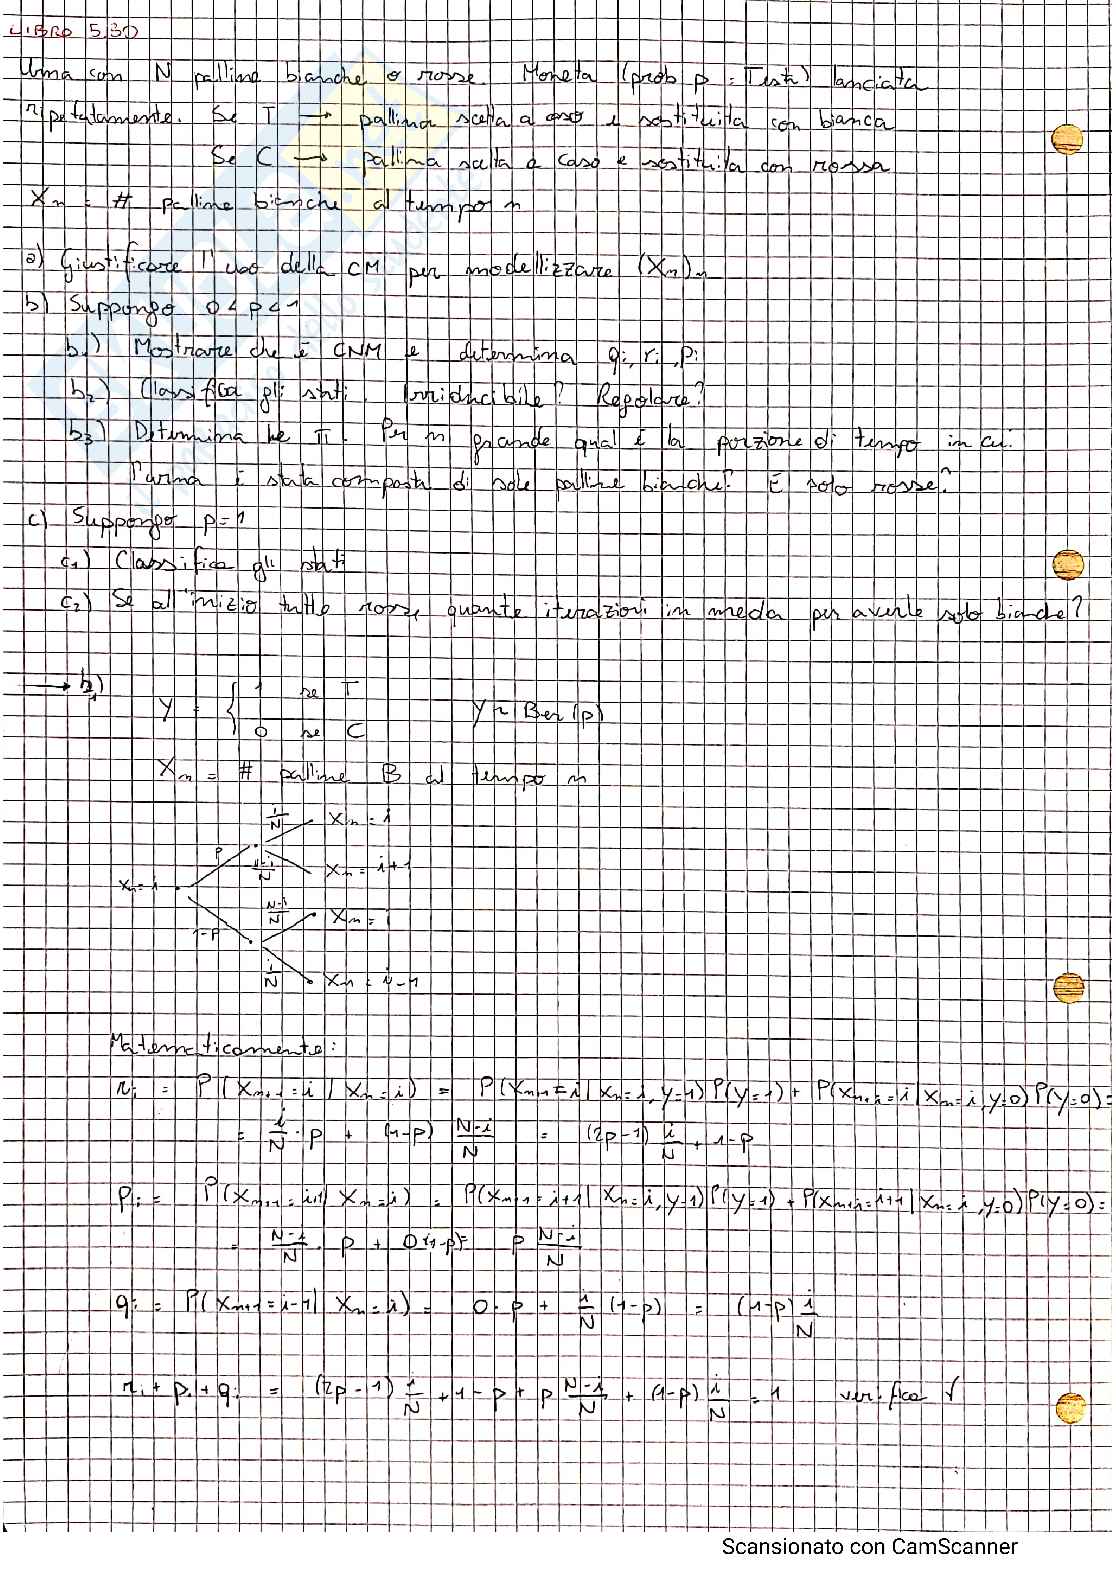 LIBRO 5.30
Urna con N palline bianche o rosse. Moneta (prob p = Testa) lanciata
ripetutamente. Se T → pallina scelta a caso e sostituita con bianca
Se C → pallina scelta a caso e sostituita con rossa
Xn = # palline bianche al tempo n
a) Giustificare l'uso della CM per modellizzare (Xn)n
b) Suppongo 0 < p < 1
b1) Mostrare che è CNM e determina qi, ri, pi
b2) Classifica gli stati. Irriducibile? Regolare?
b3) Determina le π. Per n grande qual è la porzione di tempo in cui
l'urna è stata composta di sole palline bianche? E solo rosse?
c) Suppongo p=1
c1) Classifica gli stati
c2) Se all'inizio tutte rosse, quante iterazioni in media per averle solo bianche?
→ b1)
Y = { 1 se T
0 se C
Y ~ Ber(p)
Xn = # palline B al tempo n
i/N Xn = i
p
N-i/N Xn = i+1
Xn = i
N-i/N Xn = i
1-p
i/N Xn = i-1
Matematicamente:
ri = P(Xn+1 = i | Xn = i) = P(Xn+1 = i | Xn = i, y=1) P(y=1) + P(Xn+1 = i | Xn = i, y=0) P(y=0) =
= i/N · p + (1-p) N-i/N = (2p-1) i/N + 1-p
pi = P(Xn+1 = i+1 | Xn = i) = P(Xn+1 = i+1 | Xn = i, y=1) P(y=1) + P(Xn+1 = i+1 | Xn = i, y=0) P(y=0) =
= N-i/N · p + 0·(1-p) = p N-i/N
qi = P(Xn+1 = i-1 | Xn = i) = 0·p + i/N (1-p) = (1-p) i/N
ri + pi + qi = (2p-1) i/N + 1-p + p N-i/N + (1-p) i/N = 1 verifica √
Scansionato con CamScanner